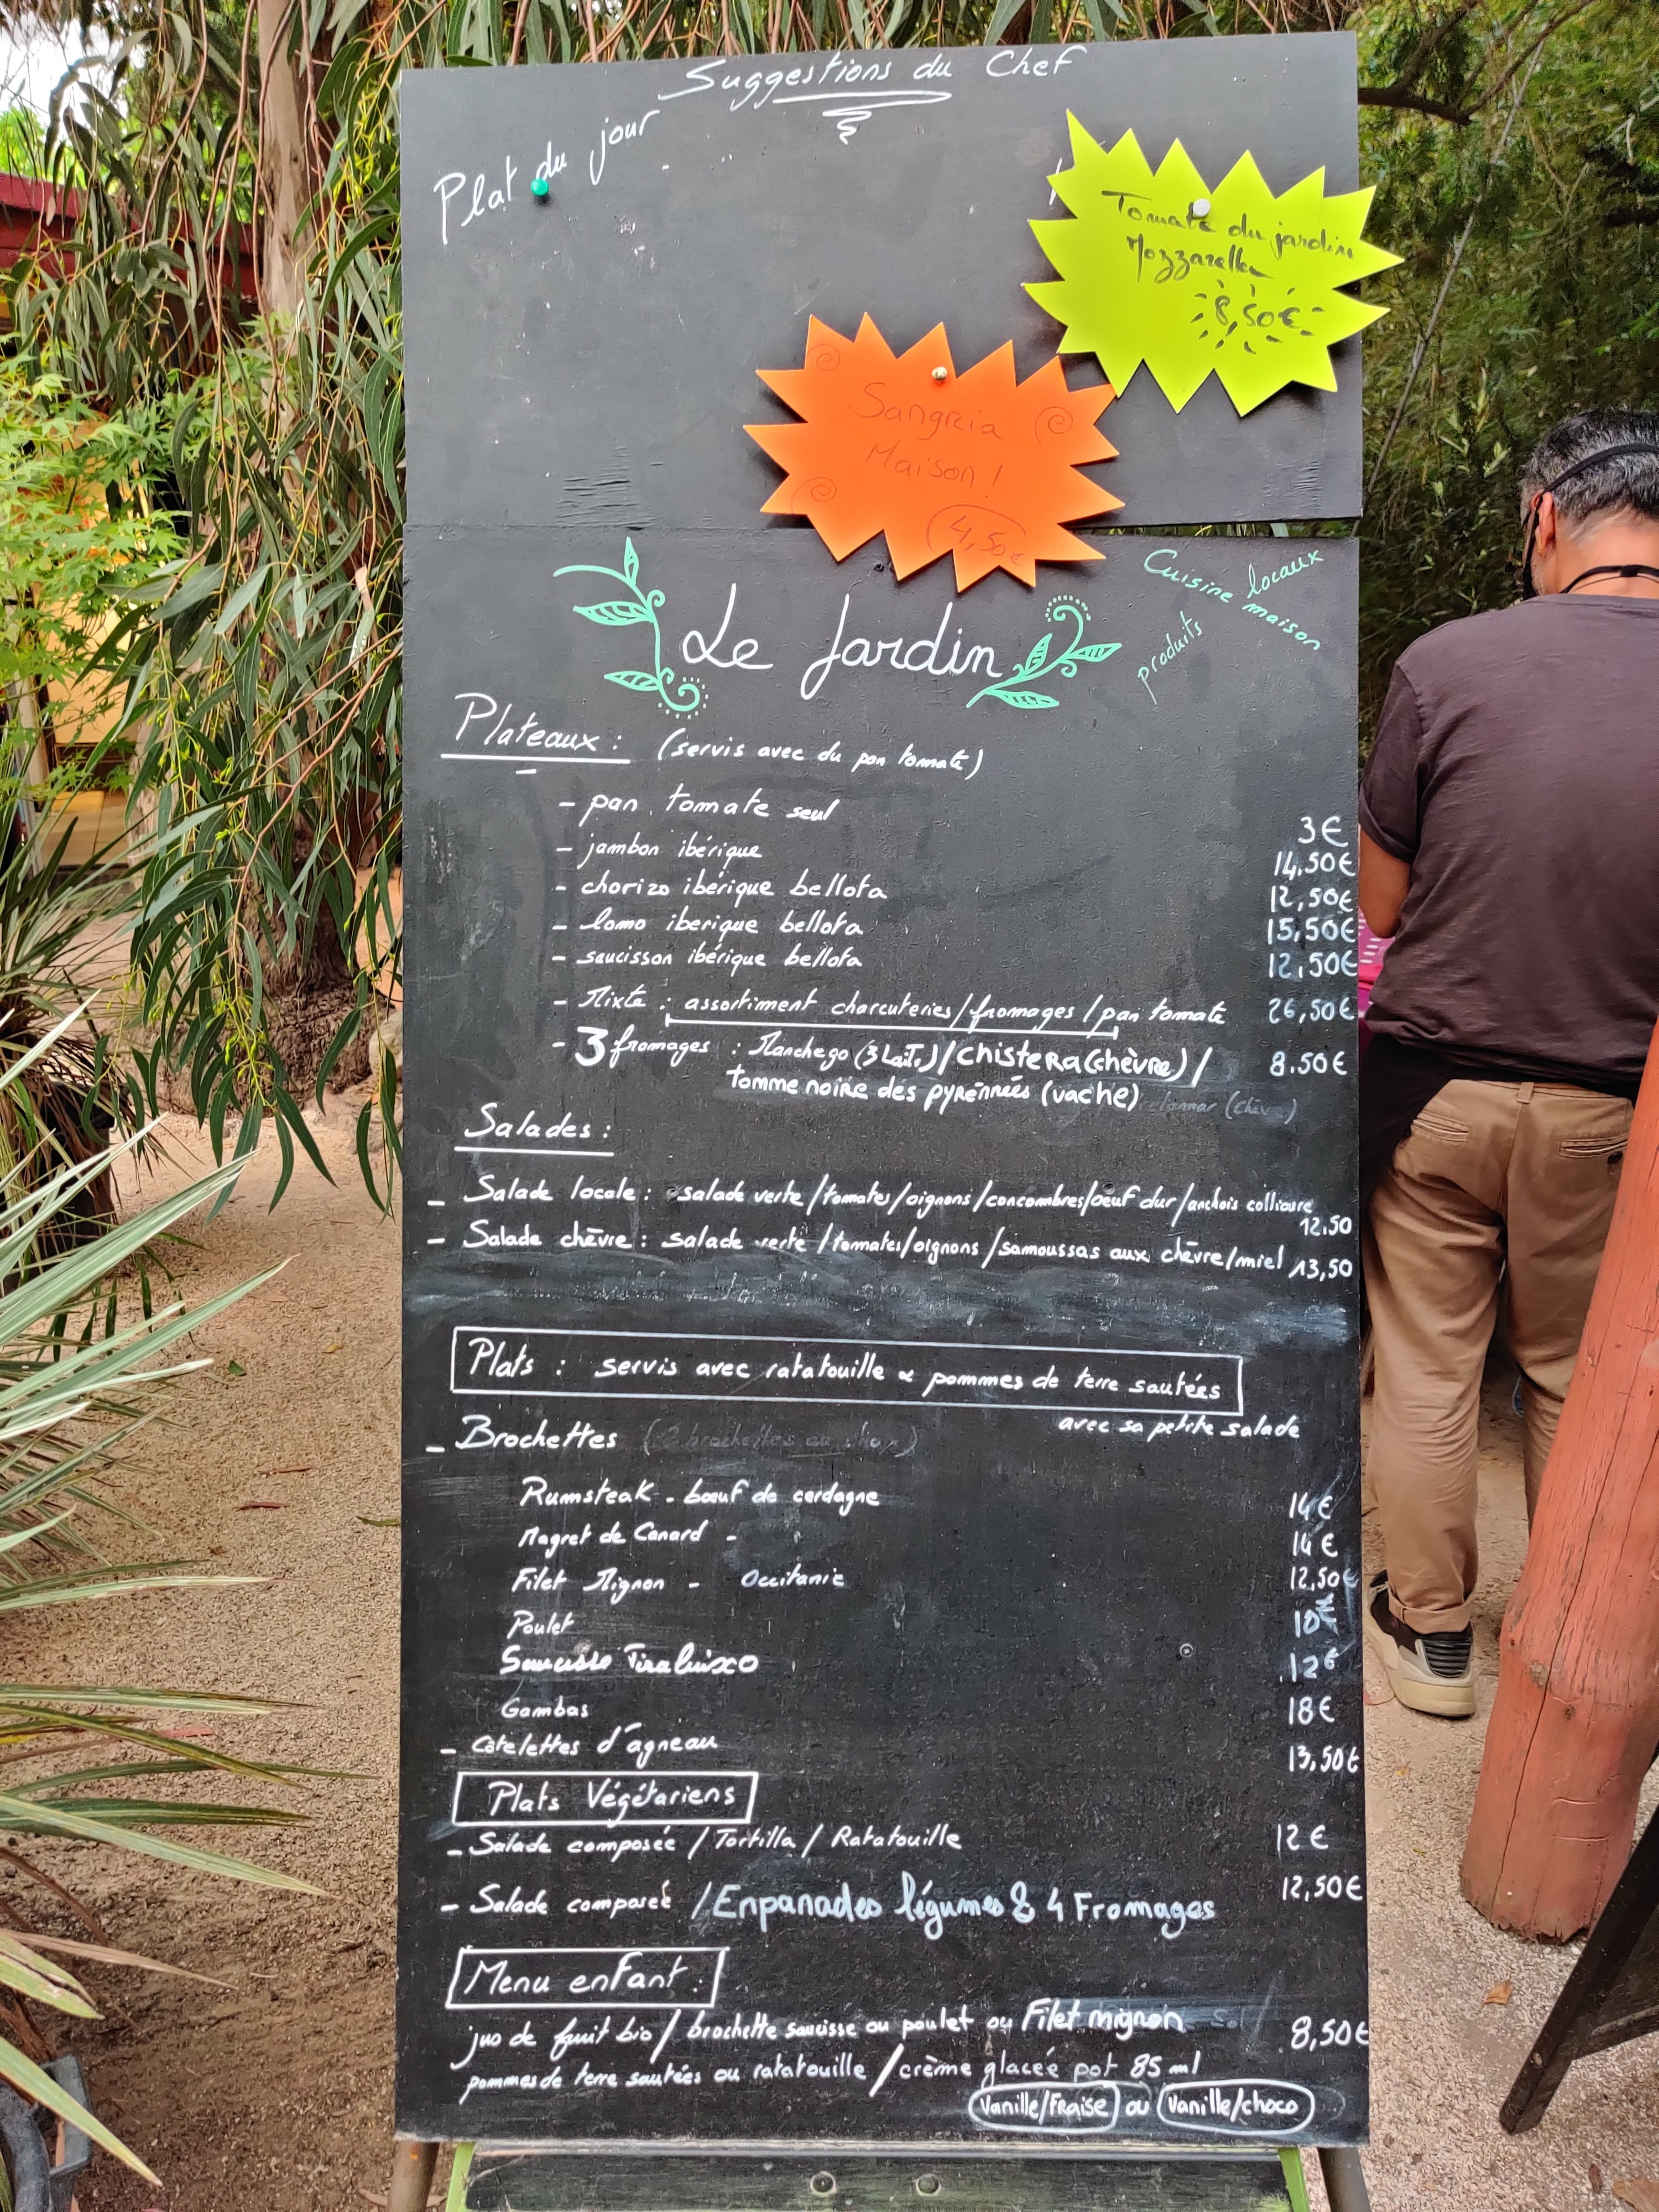 Suggestions du Chef
Plat du jour
Tomate du jardin
Mozzarella
8,50€
Sangria
Maison !
4,50€
Le Jardin
Cuisine maison
produits locaux
Plateaux : (servis avec du pan tomate)
- pan tomate seul 3€
- jambon ibérique 14,50€
- chorizo ibérique bellota 12,50€
- lomo iberique bellota 15,50€
- saucisson ibérique bellota 12,50€
- Mixte : assortiment charcuteries/fromages/pan tomate 26,50€
- 3 fromages : Manchego (3 Laits)/Chistera(chèvre)/ 8.50€
tomme noire des pyrénnées (vache)
(chèvre)
Salades :
- Salade locale : salade verte/tomates/oignons/concombres/oeuf dur/anchois collioure
12.50
- Salade chèvre : salade verte/tomates/oignons/samoussas aux chèvre/miel 13,50
Plats : servis avec ratatouille & pommes de terre sautées
avec sa petite salade
- Brochettes (2 brochettes au choix)
Rumsteak - boeuf de cerdagne 14€
Magret de Canard - 14€
Filet Mignon - Occitanie 12,50€
Poulet 10€
Saucisse Tirabuixo 12€
Gambas 18€
- Côtelettes d'agneau 13,50€
Plats Végétariens
- Salade composée / Tortilla / Ratatouille 12€
- Salade composée / Enpanadas légumes & 4 Fromages 12,50€
Menu enfant :
jus de fruit bio / brochette saucisse ou poulet ou Filet mignon 8,50€
pommes de terre sautées ou ratatouille / crème glacée pot 85 ml
Vanille/Fraise ou Vanille/choco